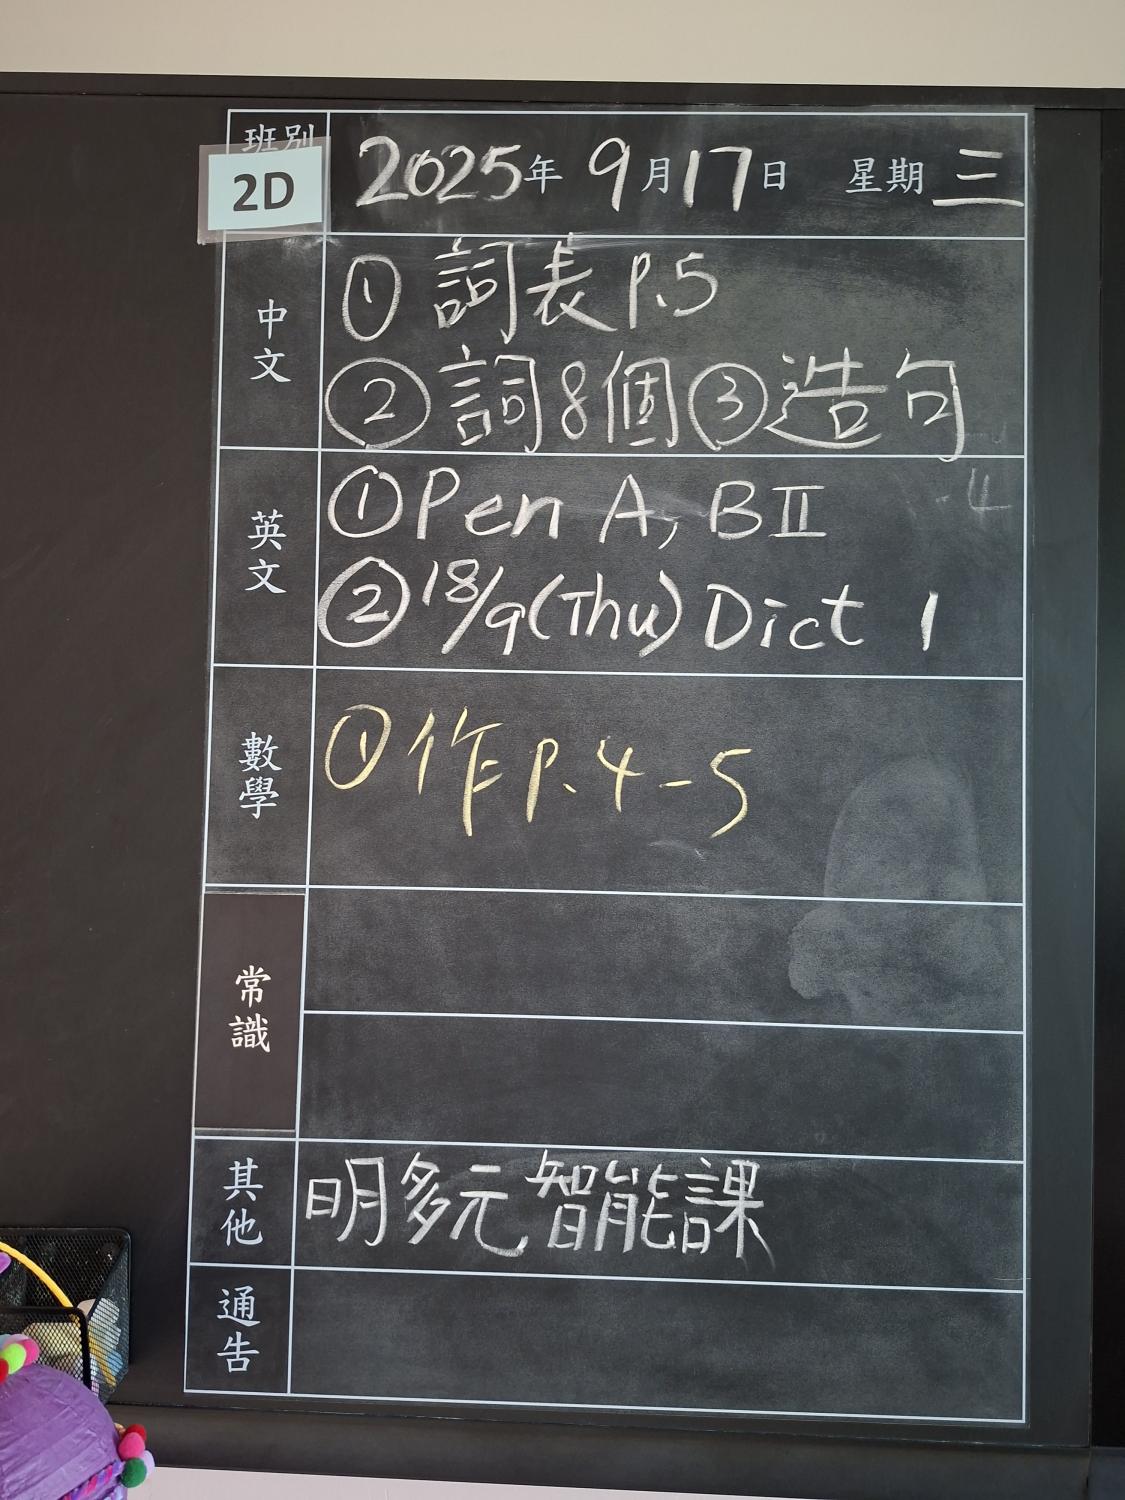 班別 2025年 9月17日 星期三
2D
中文
① 詞表 P.5
② 詞8個 ③ 造句
英文
① Pen A, B II
② 18/9(Thu) Dict 1
數學
① 作 P.4-5
常識
其他
明多元智能課
通告